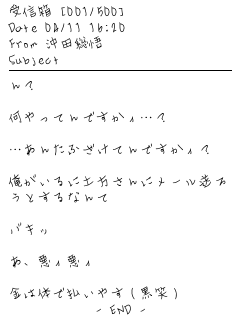 受信箱 [001/500]
Date 04/11 16:20
From 沖田総悟
Subject
ん?
何やってんですかィ…?
…あんたふざけてんですかィ?
俺がいるに土方さんにメール送ろ
うとするなんて
バキッ
あ、悪ィ悪ィ
金は体で払いやす(黒笑)
- END -